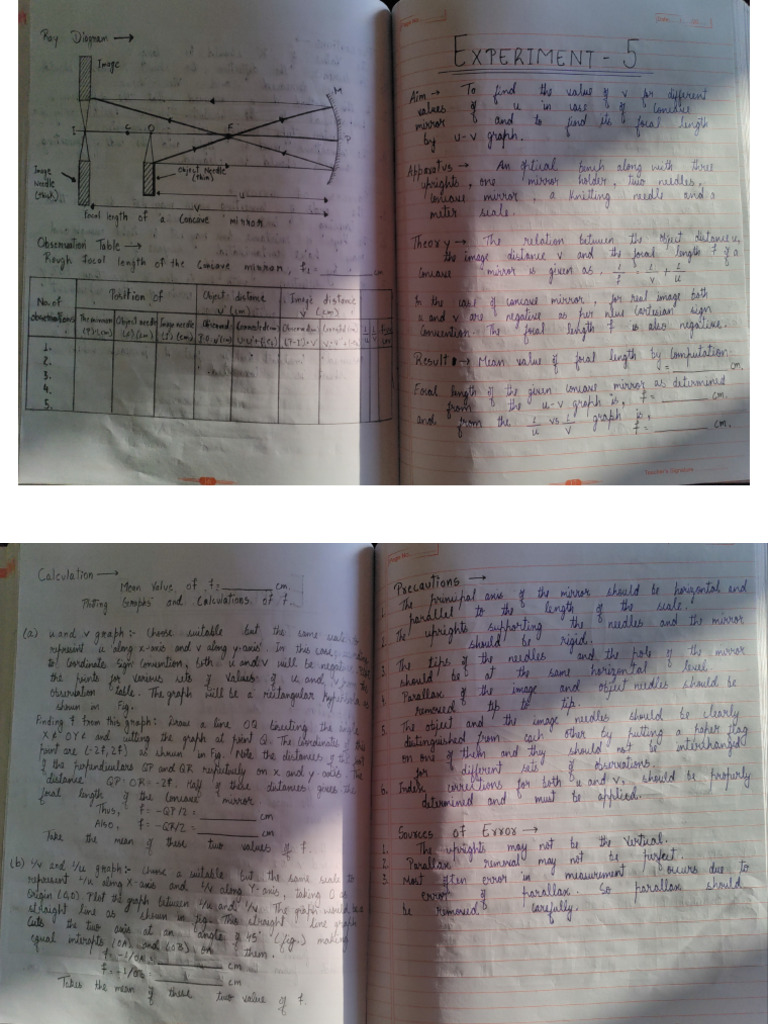 Ray Diagram →
Image
M
I
C
O
F
P
Image
Needle
(thick)
Object Needle
(thin)
u
v
focal length of a Concave mirror
Observation Table →
Rough focal length of the concave mirror, f₁ = cm
No. of
observations
Position of
Object distance
u' (cm)
Image distance
v' (cm)
The mirror
(P) (cm)
Object needle
(O) (cm)
Image needle
(I) (cm)
Observed
Observed
1.
2.
3.
4.
5.
Page No.
Date
EXPERIMENT - 5
Aim → To find the value of v for different
values of u in case of concave
mirror and to find its focal length
by u-v graph.
Apparatus → An optical bench along with three
uprights, one mirror holder, two needles,
concave mirror, a knitting needle and a
meter scale.
Theory → The relation between the object distance u,
the image distance v and the focal length f of a
concave mirror is given as, 1/f = 1/v + 1/u
In the case of concave mirror, for real image both
u and v are negative as per new cartesian sign
convention. The focal length f is also negative.
Result → Mean value of focal length by computation
= ______ cm.
Focal length of the given concave mirror as determined
from the u-v graph is, f = ______ cm
and from the 1/u vs 1/v graph is,
f = ______ cm.
Teacher's Signature
Calculation →
Mean value of f = ______ cm
Plting Graphs and Calculations of f.
(a) u and v graph :- Choose suitable but the same scale to
represent u along x-axis and v along y-axis. In this case
to Coordinate sign convention, both u and v will be negative
the points for various sets of values of u and v from the
observation table. The graph will be a rectangular hyperbola as
shown in Fig.
Finding f from this graph : Draw a line OQ bisecting the angle
and cutting the graph at point Q. The coordinates of this
point are (-2f, 2f) as shown in Fig. Note the distances of the foot
of the perpendiculars QP and QR respectively on x and y axis. The
distance QP = OR = -2f. Half of these distances gives the
focal length of the concave mirror.
Thus, f = -QP/2 = ______ cm
Also, f = -QR/2 = ______ cm
Take the mean of these two values of f.
(b) 1/v and 1/u graph :- Choose a suitable but the same scale to
represent 1/u along X-axis and 1/v along Y-axis, taking O as
Origin (0,0) Plot the graph between 1/u and 1/v. The graph would be a
straight line as shown in fig. This straight line graph
cuts the two axis at an angle of 45° (fig.) making
equal intercepts (OA) and (OB) on them.
f = -1/OA = ______ cm
f = -1/OB = ______ cm
Takes the mean of these two value of f.
Page No.
Precautions →
1. The principal axis of the mirror should be horizontal and
parallel to the length of the scale.
2. The uprights supporting the needles and the mirror
should be rigid.
3. The tips of the needles and the pole of the mirror
should be at the same horizontal level.
4. Parallax of the image and object needles should be
removed tip to tip.
5. The object and the image needles should be clearly
distinguished from each other by putting a paper flag
on one of them and they should not be interchanged
for different sets of observations.
6. Index corrections for both u and v, should be properly
determined and must be applied.
Sources of Error →
1. The uprights may not be the vertical.
2. Parallax removal may not be perfect.
3. Most often error in measurement occurs due to
error of parallax. So parallax should
be removed carefully.